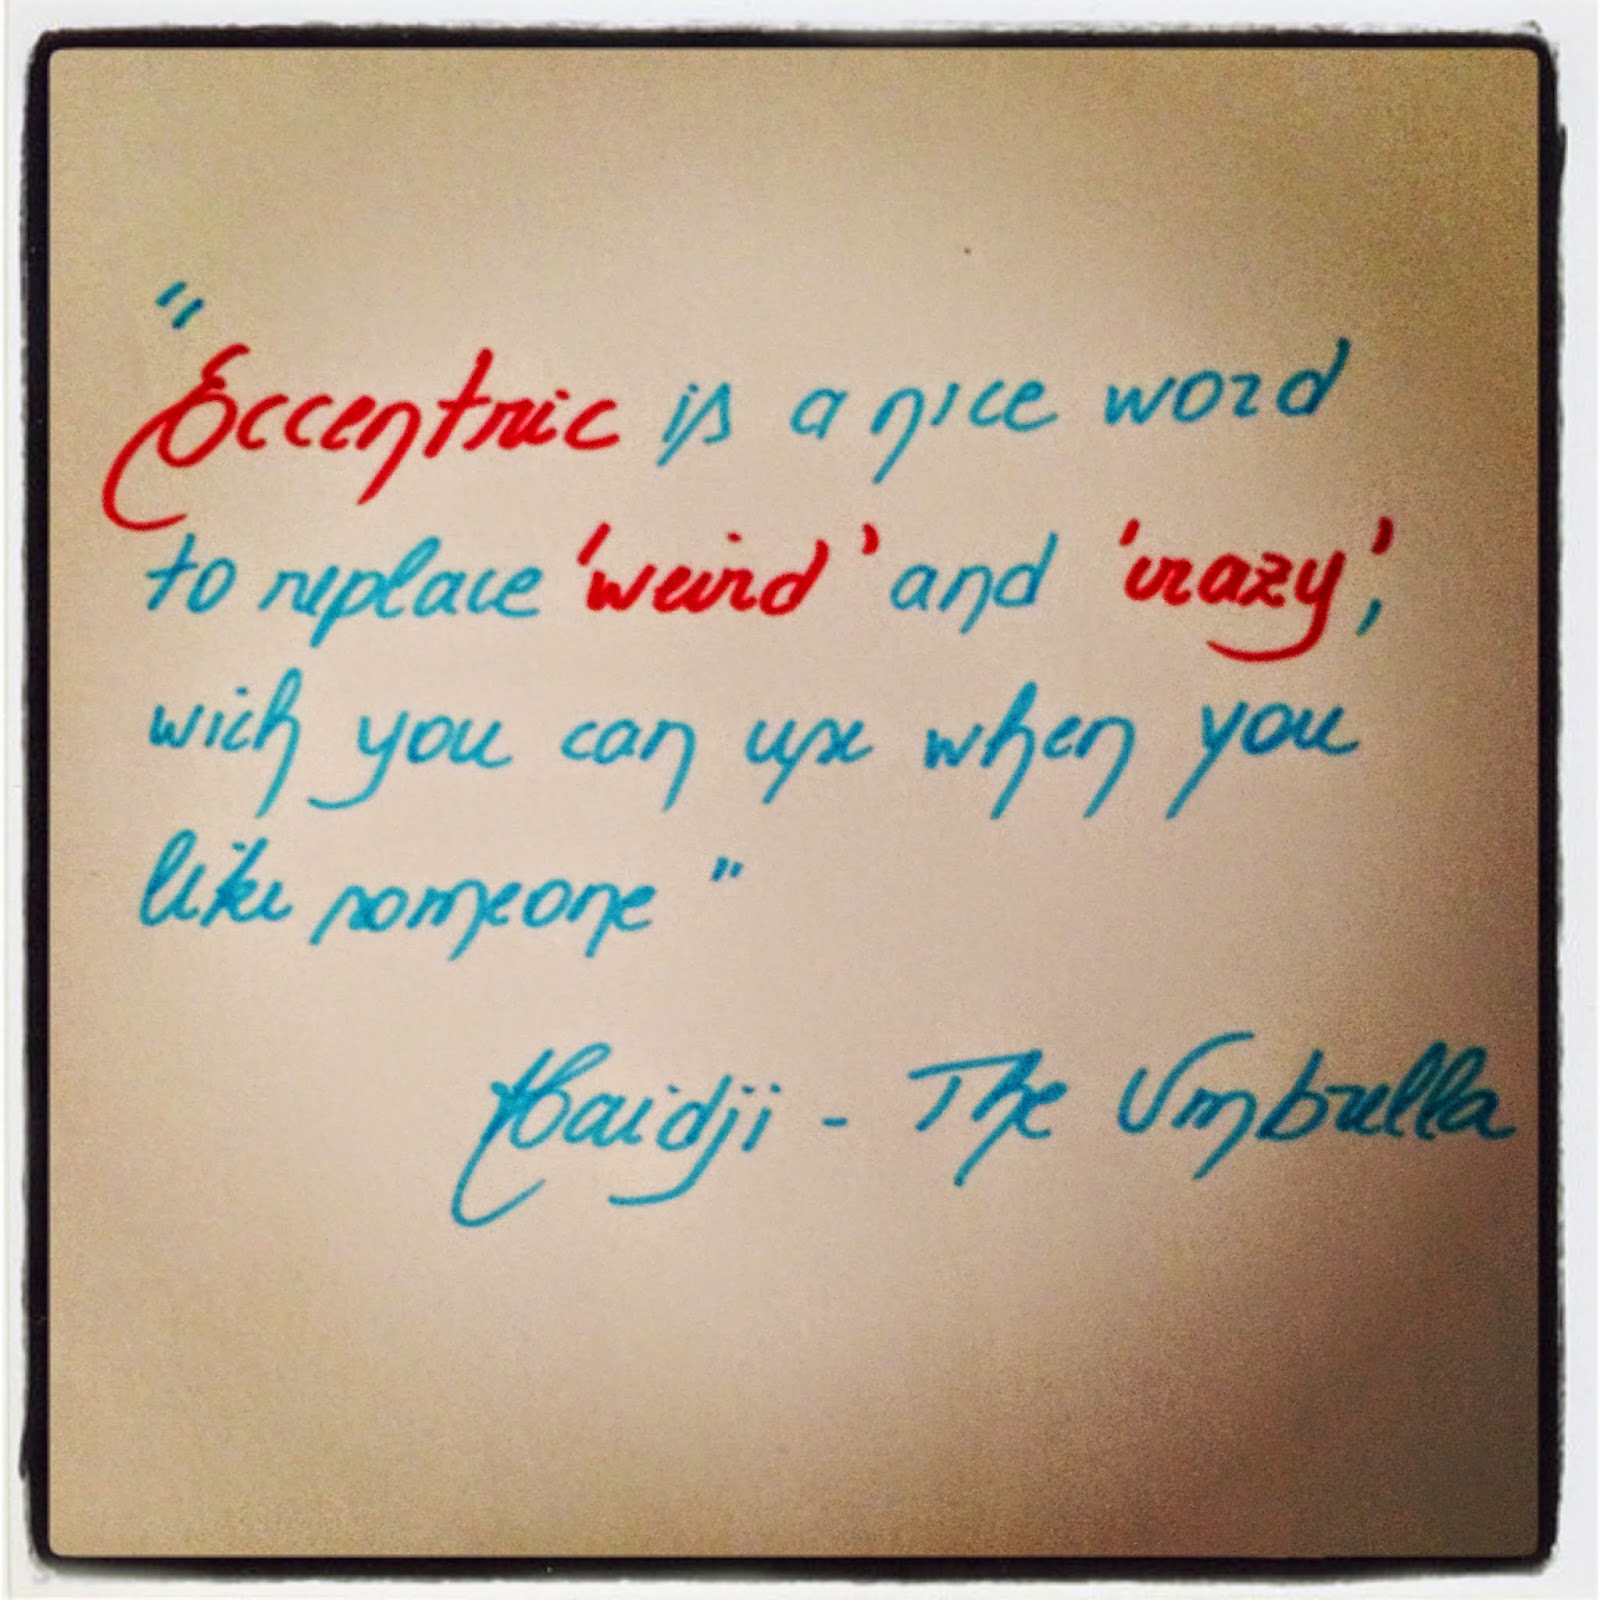 "
Eccentric is a nice word
to replace 'weird' and 'crazy',
wich you can use when you
like someone"
Haidji - The Umbrella